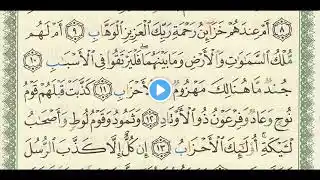 ٨ أَمْ عِندَهُمْ خَزَآئِنُ رَحْمَةِ رَبِّكَ ٱلْعَزِيزِ ٱلْوَهَّابِ ٩ أَمْ لَهُم
مُّلْكُ ٱلسَّمَٰوَٰتِ وَٱلْأَرْضِ وَمَا بَيْنَهُمَا ۖ فَلْيَرْتَقُوا۟ فِى ٱلْأَسْبَٰبِ ١٠
جُندٌ مَّا هُنَالِكَ مَهْزُومٌ ٱلْأَحْزَابِ ١١ كَذَّبَتْ قَبْلَهُمْ قَوْمُ
نُوحٍ وَعَادٌ وَفِرْعَوْنُ ذُو ٱلْأَوْتَادِ ١٢ وَثَمُودُ وَقَوْمُ لُوطٍ وَأَصْحَٰبُ
لْـَٔيْكَةِ ۚ أُو۟لَٰٓئِكَ ٱلْأَحْزَابُ ١٣ إِن كُلٌّ إِلَّا كَذَّبَ ٱلرُّسُلَ